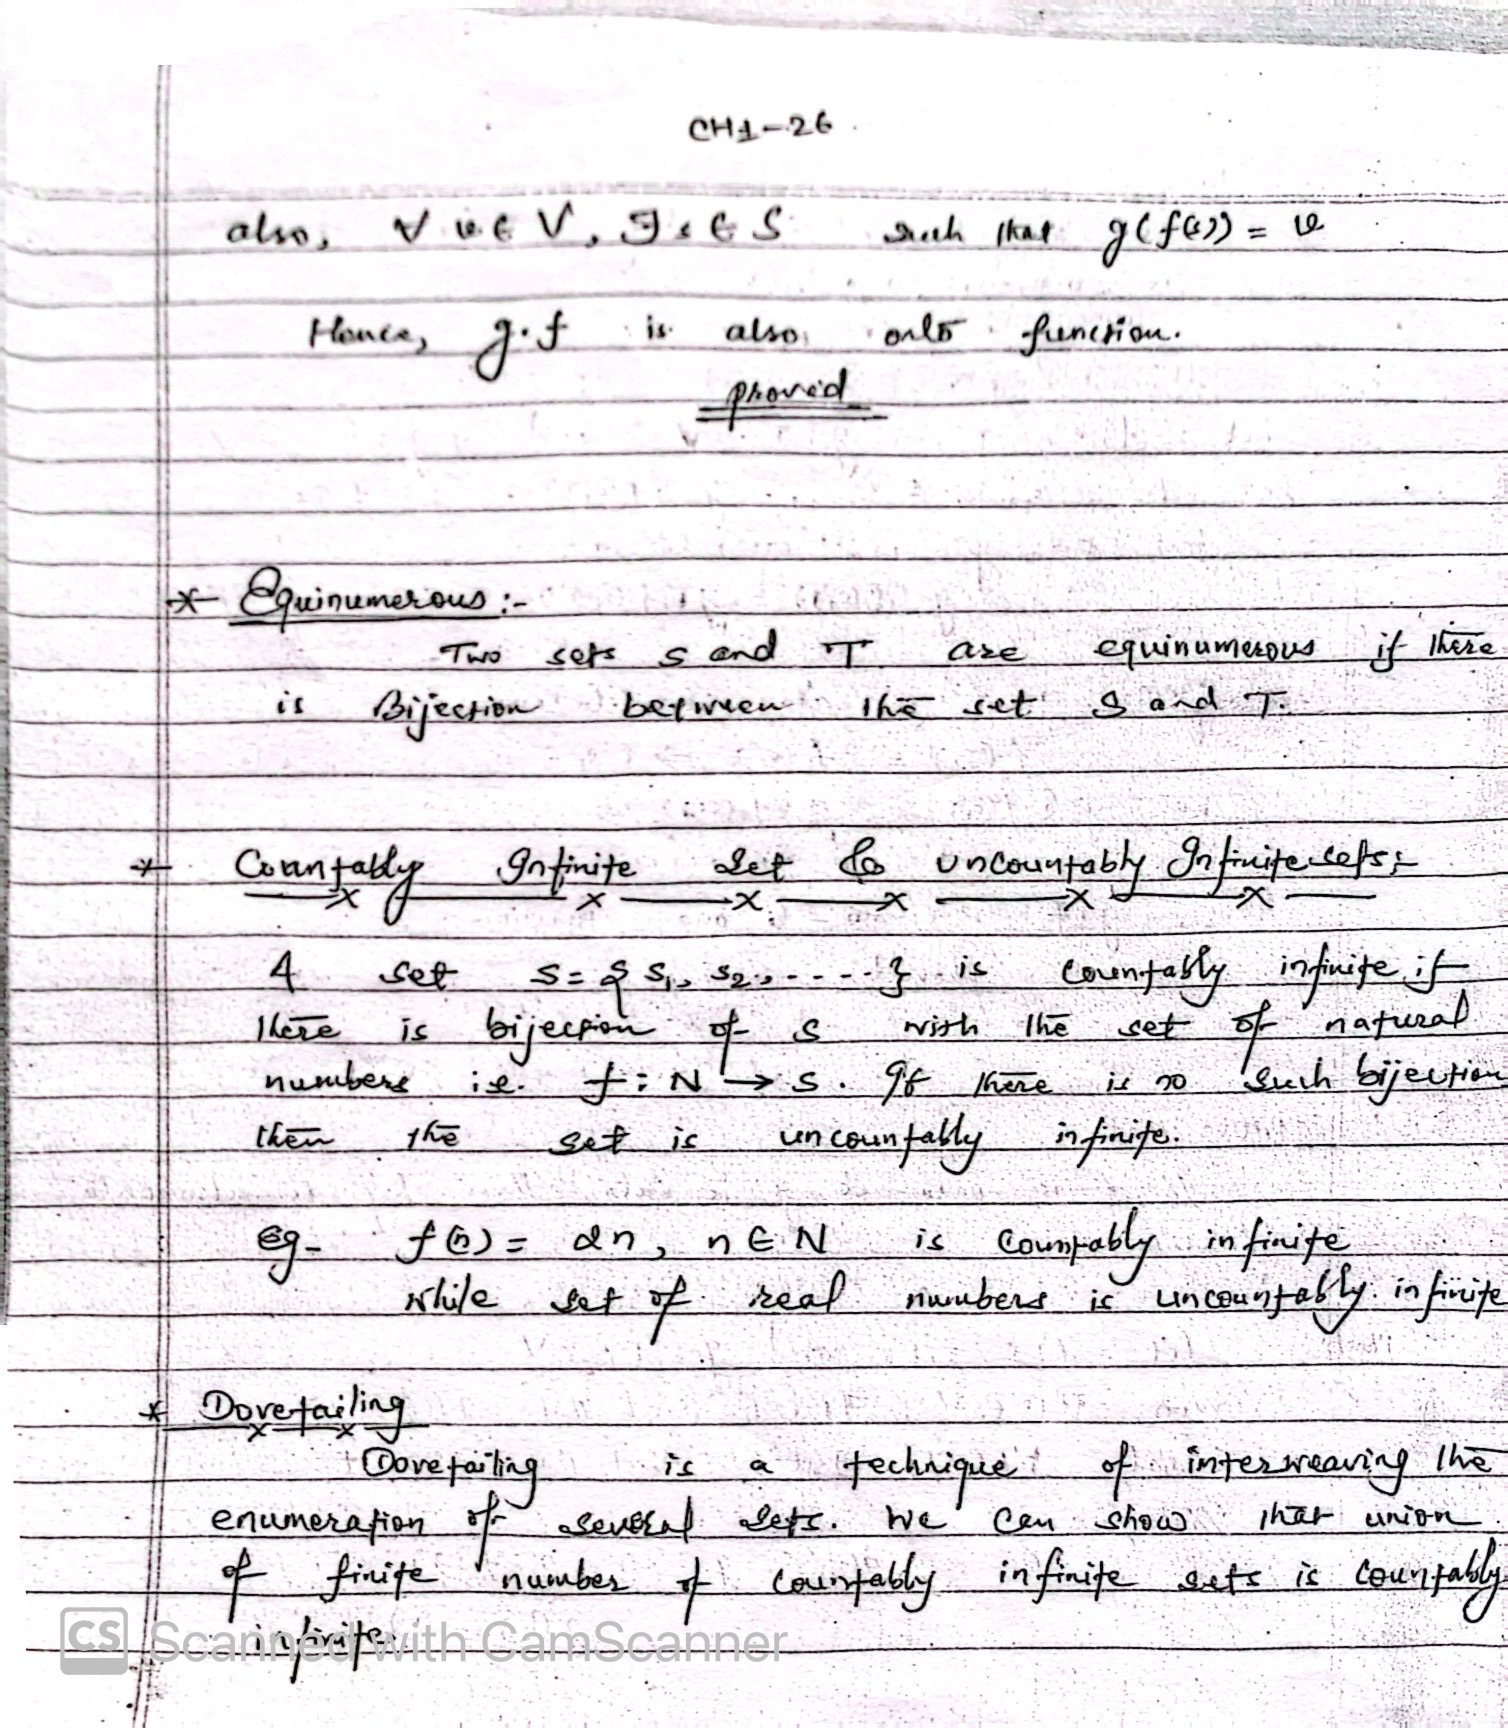 CH1-26
also, ∀ v ∈ V, ∃ s ∈ S such that g(f(s)) = v
Hence, g.f is also onto function.
proved
* Equinumerous :-
Two sets S and T are equinumerous if there
is Bijection between the set S and T.
* Countably Infinite Set & Uncountably Infinite sets :-
A set S = { S1, S2, ----- } is countably infinite if
there is bijection of S with the set of natural
numbers i.e. f : N → S. If there is no such bijection
then the set is uncountably infinite.
eg- f(n) = 2n, n ∈ N is countably infinite
while set of real numbers is uncountably infinite
* Dovetailing
Dovetailing is a technique of interweaving the
enumeration of several sets. We can show that union
of finite number of countably infinite sets is countably
infinite.
CS Scanned with CamScanner